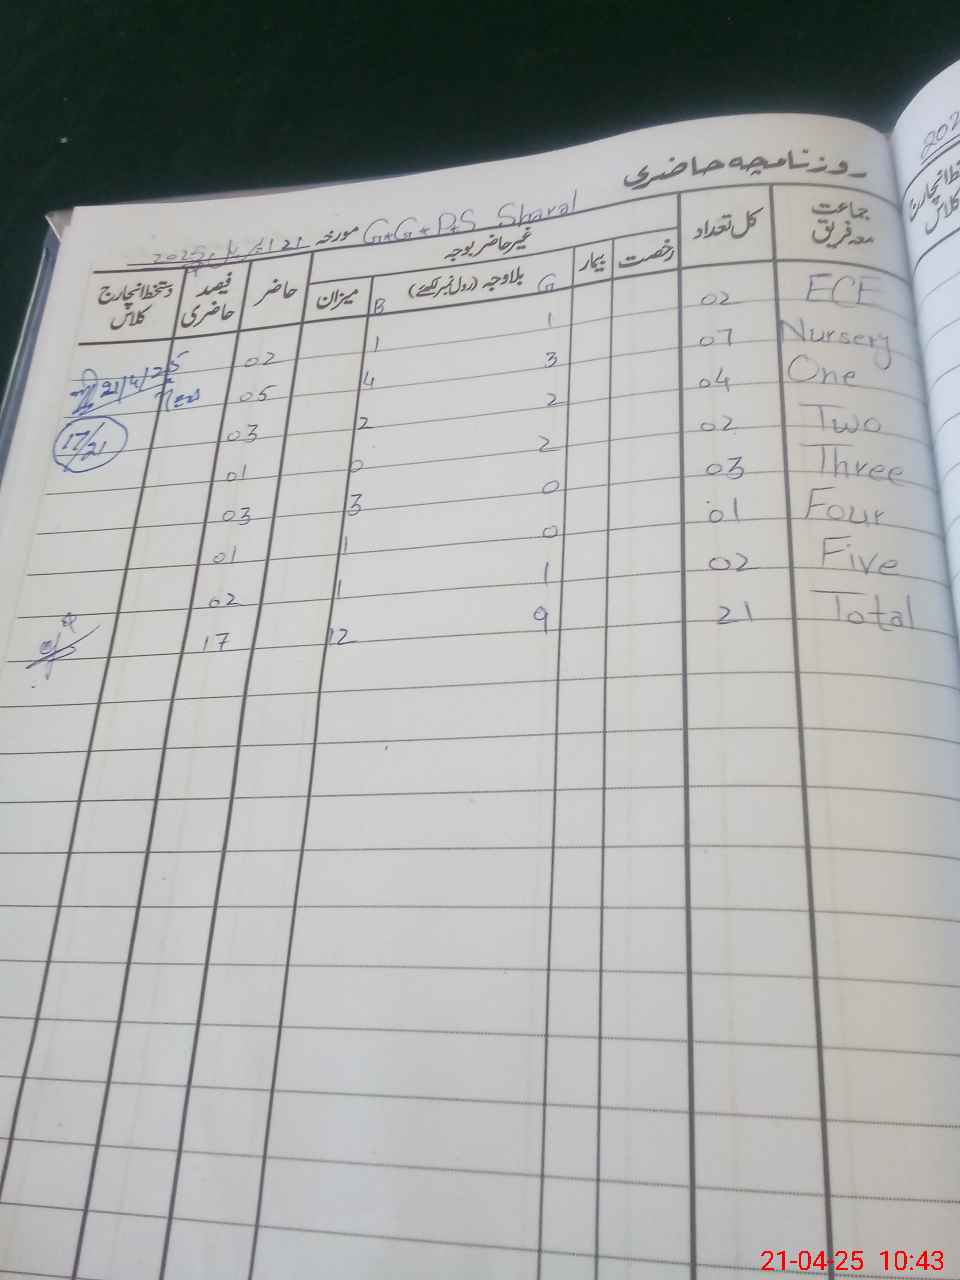 روزنامچہ حاضری
G.G.P.S Sharal مورخہ 21/4/2025
جماعت معہ فریق کل تعداد غیر حاضر بوجہ حاضر فیصد حاضری دستخط انچارج کلاس
رخصت بیمار بلاوجہ (رول نمبر لکھئے) میزان
G B
ECE 02 1 1 02
Nursery 07 3 4 05
One 04 2 2 03
Two 02 2 0 01
Three 03 0 3 03
Four 01 0 1 01
Five 02 1 1 02
Total 21 9 12 17
21/4/25
17/21
202
انچارج
کلاس
21-04-25 10:43